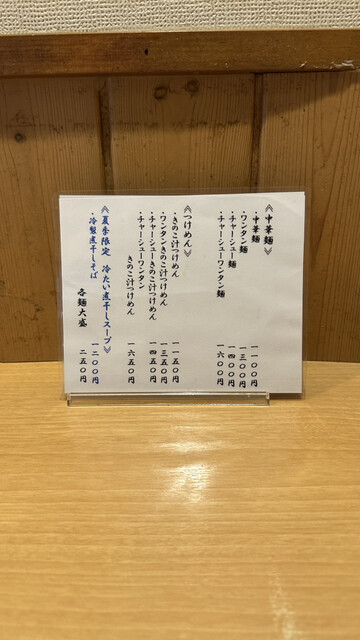 《中華麺》
・中華麺 一一〇〇円
・ワンタン麺 一三〇〇円
・チャーシュー麺 一四〇〇円
・チャーシューワンタン麺 一六〇〇円
《つけめん》
・きのこ汁つけめん 一一五〇円
・ワンタンきのこ汁つけめん 一三五〇円
・チャーシューきのこ汁つけめん 一四五〇円
・チャーシューワンタン
きのこ汁つけめん 一六五〇円
《夏季限定 冷たい煮干しスープ》
・冷製煮干しそば 一二〇〇円
各麺大盛 二五〇円